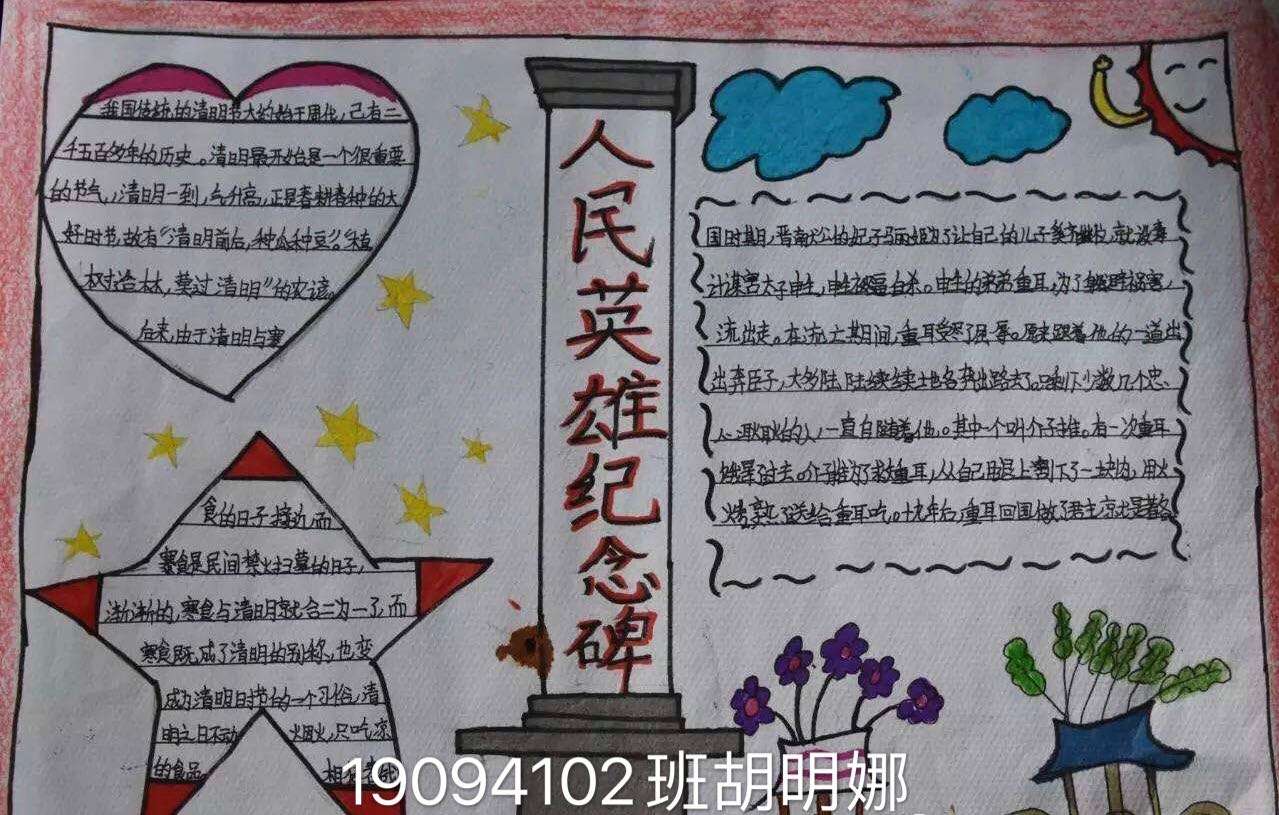 我国传统的清明节大约始于周代，己有二
千五百多年的历史。清明最开始是一个很重要
的节气，清明一到，气升高，正是春耕春种的大
好时节，故有“清明前后，种瓜种豆”。“植
树造林，莫过清明”的农谚。
后来，由于清明与寒
食的日子接近，而
寒食是民间禁火扫墓的日子，
渐渐的，寒食与清明就合二为一了，而
寒食既成了清明的别称，也变
成为清明日时节的一个习俗，清
明之日不动 烟火，只吃凉
的食品。
相传
人民英雄纪念碑
国时期，晋献公的妃子骊姬为了让自己的儿子奚齐继位，就设毒
计谋害太子申生，申生被逼自杀。申生的弟弟重耳，为了躲避祸害，
流出走。在流亡期间，重耳受尽了屈辱。原来跟着他的一道出
出奔臣子，大多陆陆续续地各奔出路去了。只剩下少数几个忠
心耿耿的人，一直自随着他。其中一个叫介子推。有一次重耳
饿晕了过去。介子推为了救重耳，从自己用腿上割下了一块肉，用火
烤熟了送给重耳吃。十九年后，重耳回国做了君主，
19094102班胡明娜